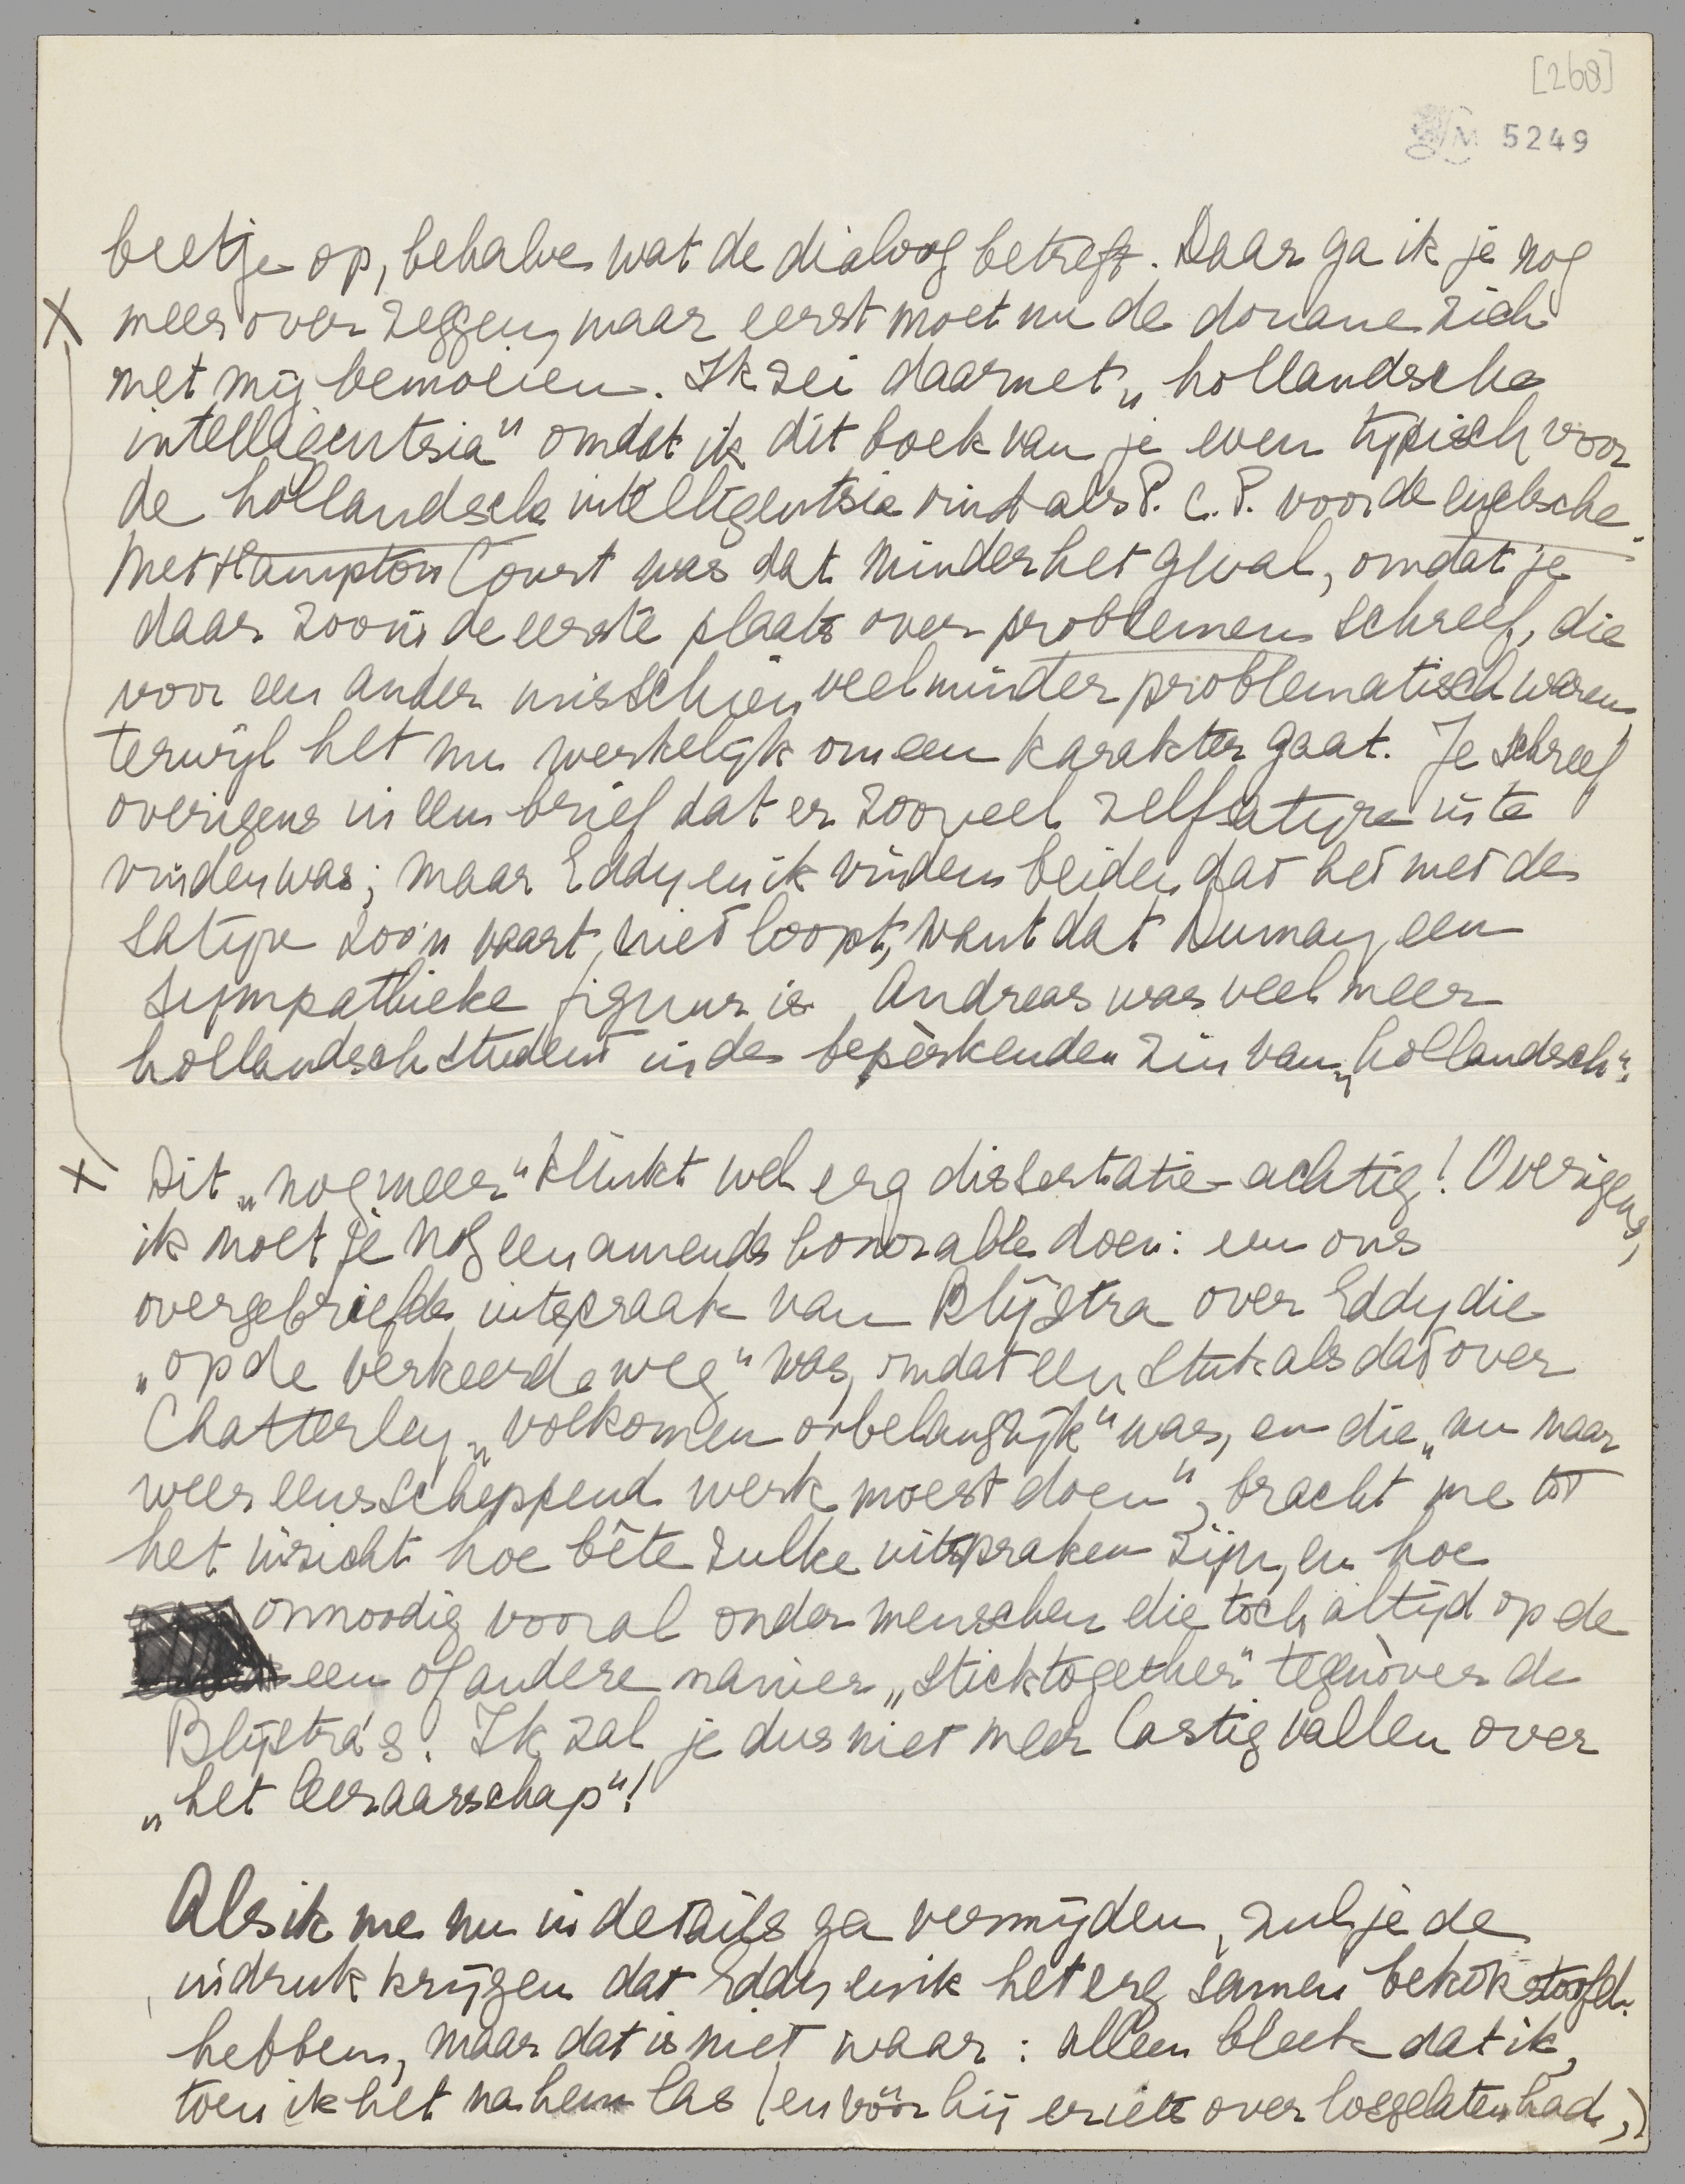 [268]
M 5249
beetje op, behalve wat de dialoog betreft. Daar ga ik je nog
X meer over zeggen, maar eerst moet nu de douane zich
met mij bemoeien. Ik zei daarnet „hollandsche
intelligentsia" omdat ik dit boek van je even typisch voor
de hollandsche intelligentsia vind als P. C. P. voor de engelsche.
Met Hampton Court was dat minder het geval, omdat je
daar zoo in de eerste plaats over problemen schreef, die
voor een ander misschien veel minder problematisch waren,
terwijl het nu werkelijk om een karakter gaat. Je schreef
overigens in een brief dat er zooveel zelfsatyre in te
vinden was; maar Eddy en ik vinden beiden dat het met de
satyre zoo'n vaart niet loopt, want dat Dumay een
sympathieke figuur is. Andreas was veel meer
hollandsch student in den bepèrkenden zin van „hollandsch".
X Dit „nog meer" klinkt wel erg dissertatie-achtig! Overigens,
ik moet je nog een amende honorable doen: een ons
overgebriefde uitspraak van Blijstra over Eddy die
„op de verkeerde weg" was, omdat een stuk als dat over
Chatterley „volkomen onbelangrijk" was, en die „nu maar
weer eens scheppend werk moest doen", bracht me tot
het inzicht hoe bête zulke uitspraken zijn, en hoe
onnoodig vooral onder menschen die toch altijd op de
een of andere manier „stick together" tegenòver de
Blijstra's. Ik zal je dus niet meer lastig vallen over
„het leeraarschap"!
Als ik me nu in details ga vermijden, zul je de
indruk krijgen dat Eddy en ik het erg samen bekokstoofd
hebben, maar dat is niet waar: alleen bleek dat ik,
toen ik het na hem las (en vóór hij er iets over losgelaten had,)